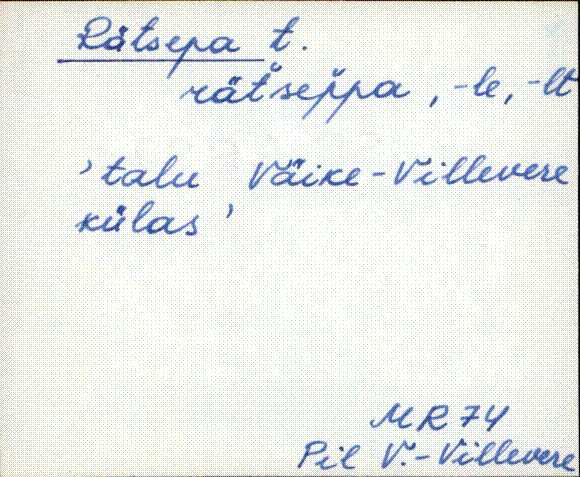 Rätsepa t.
rät̆sep̆pa, -le, -lt
'talu Väike-Villevere
külas'
MR 74
Pil V.-Villevere